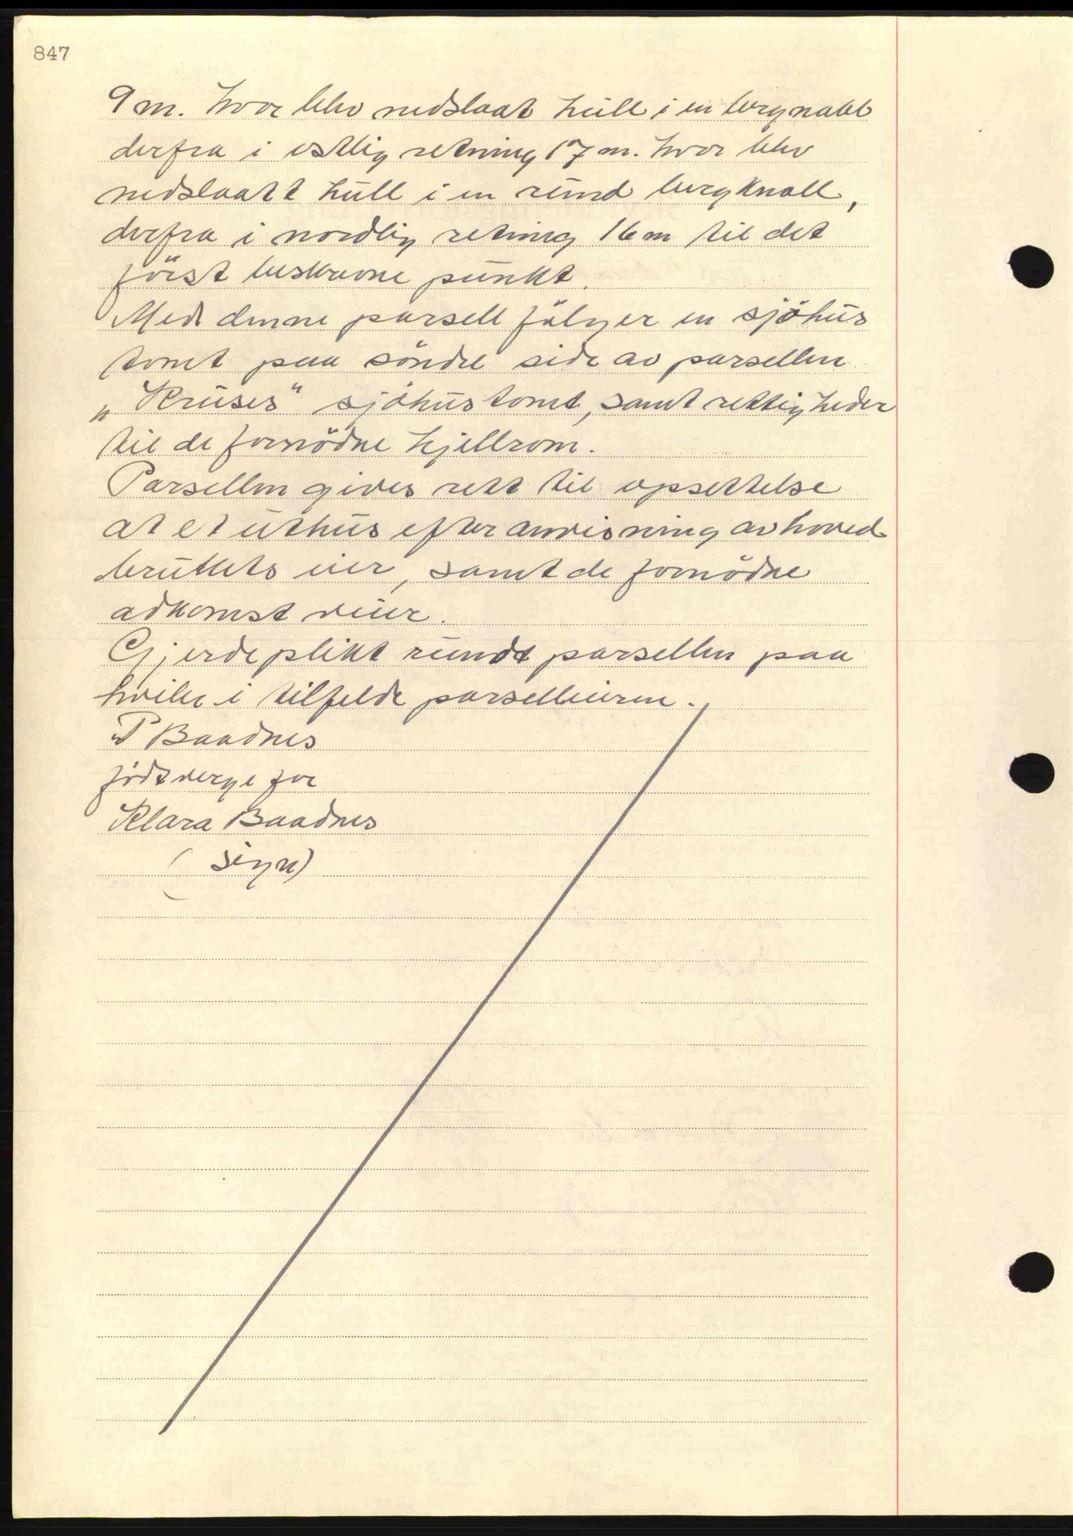 847
9 m. hvor blev nedslaat hull i en bergnabb
derfra i østlig retning 17 m. hvor blev
nedslaatt hull i en rund bergknall,
derfra i nordlig retning 16 m til det
först beskrevne punkt.
Med denne parsell fölger en sjöhus
tomt paa söndre side av parsellen
„Kruses" sjöhustomt, samt rettigheder
til de fornödne kjellrom.
Parsellen gives rett til opsettelse
at et uthus efter anvisning av hoved
brukets eier, samt de fornödne
adkomst veier.
Gjerdeplikt rundt parsellen paa
hviler i tilfelde parselleieren.
P Baadnes
födt verge for
Klara Baadnes
(sign)